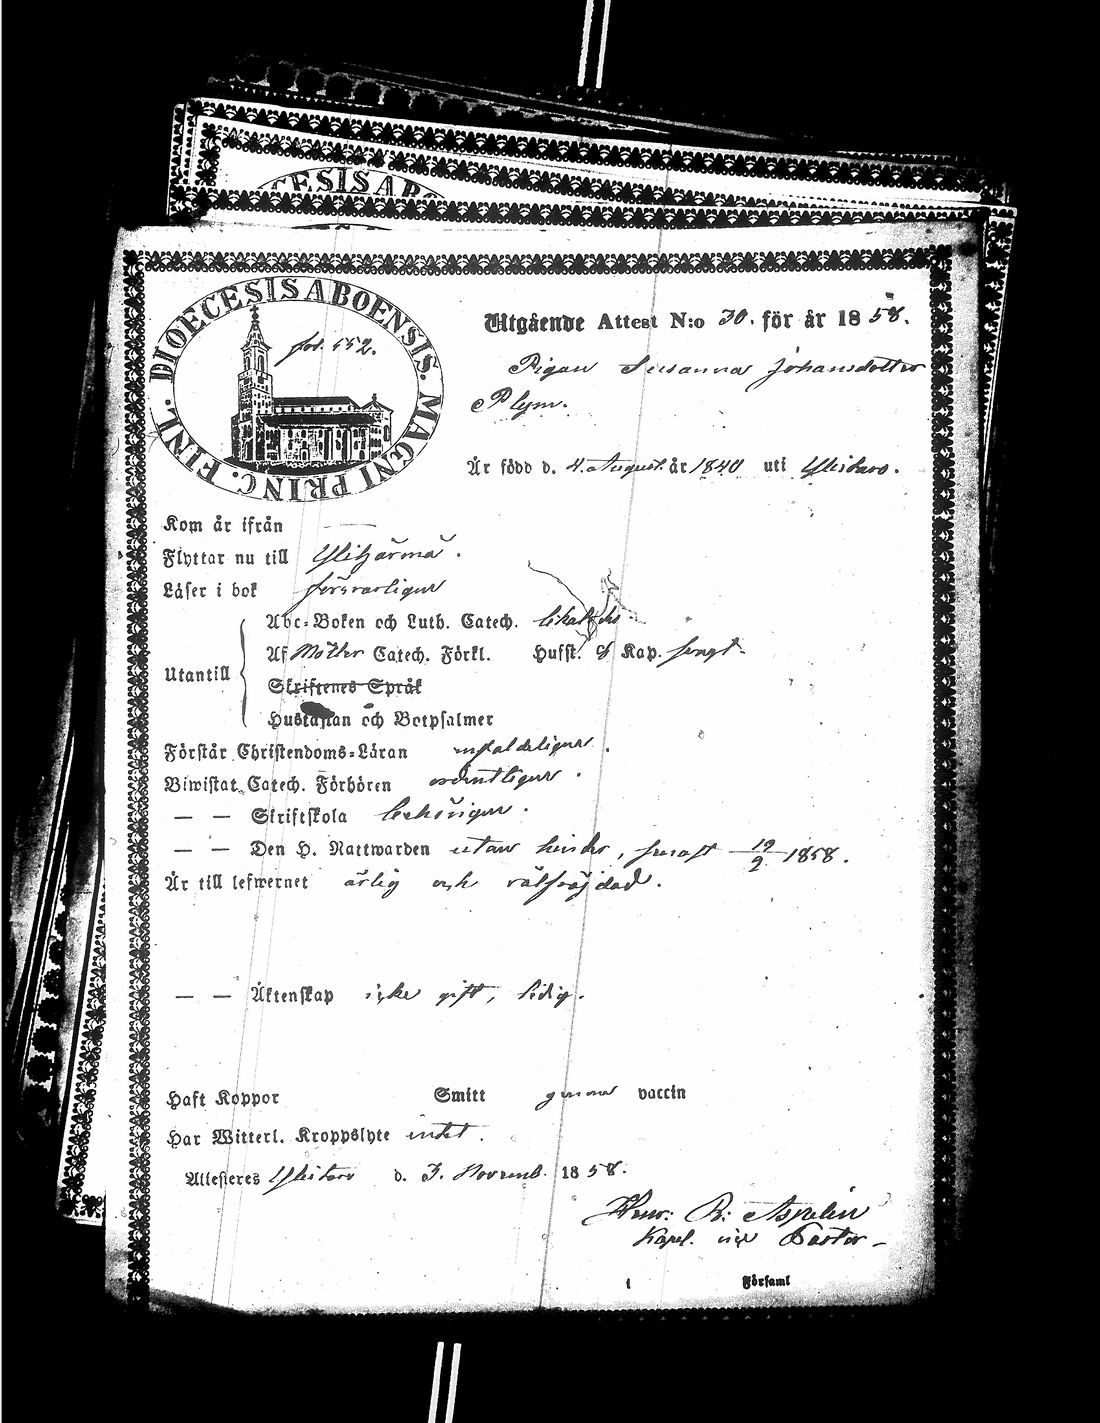 ŒCESIS ABO
DIOECESIS ABOENSIS. MAGNI PRINC. FINL.
fol. 552.
Utgående Attest N:o 30. för år 1858.
Pigan Susanna Johansdotter
Plym.
Är född d. 4. August. år 1840 uti Ylistaro.
Kom år ifrån —
Flyttar nu till Ylihärmä.
Läser i bok försvarligen
Abc-Boken och Luth. Catech. likaledes.
Utantill
Af Möller Catech. Förkl. Hufst. & Kap. svagt.
Skriftenes Språk
Hustaflan och Botpsalmer
Förstår Christendoms-Läran enfaldeligen.
Biwistat Catech. Förhören ordentligen.
— — Skriftskola behörigen.
— — Den H. Nattwarden utan hinder, senast 19/9 1858.
Är till lefwernet ärlig och välfräjdad.
— — Äktenskap icke gift, ledig.
Haft Koppor Smitt genom vaccin
Har Witterl. Kroppslyte intet.
Attesteres Ylistaro d. 3. Novemb. 1858.
Henr. R: Aspelin
Kapel. vice Pastor
i Församl